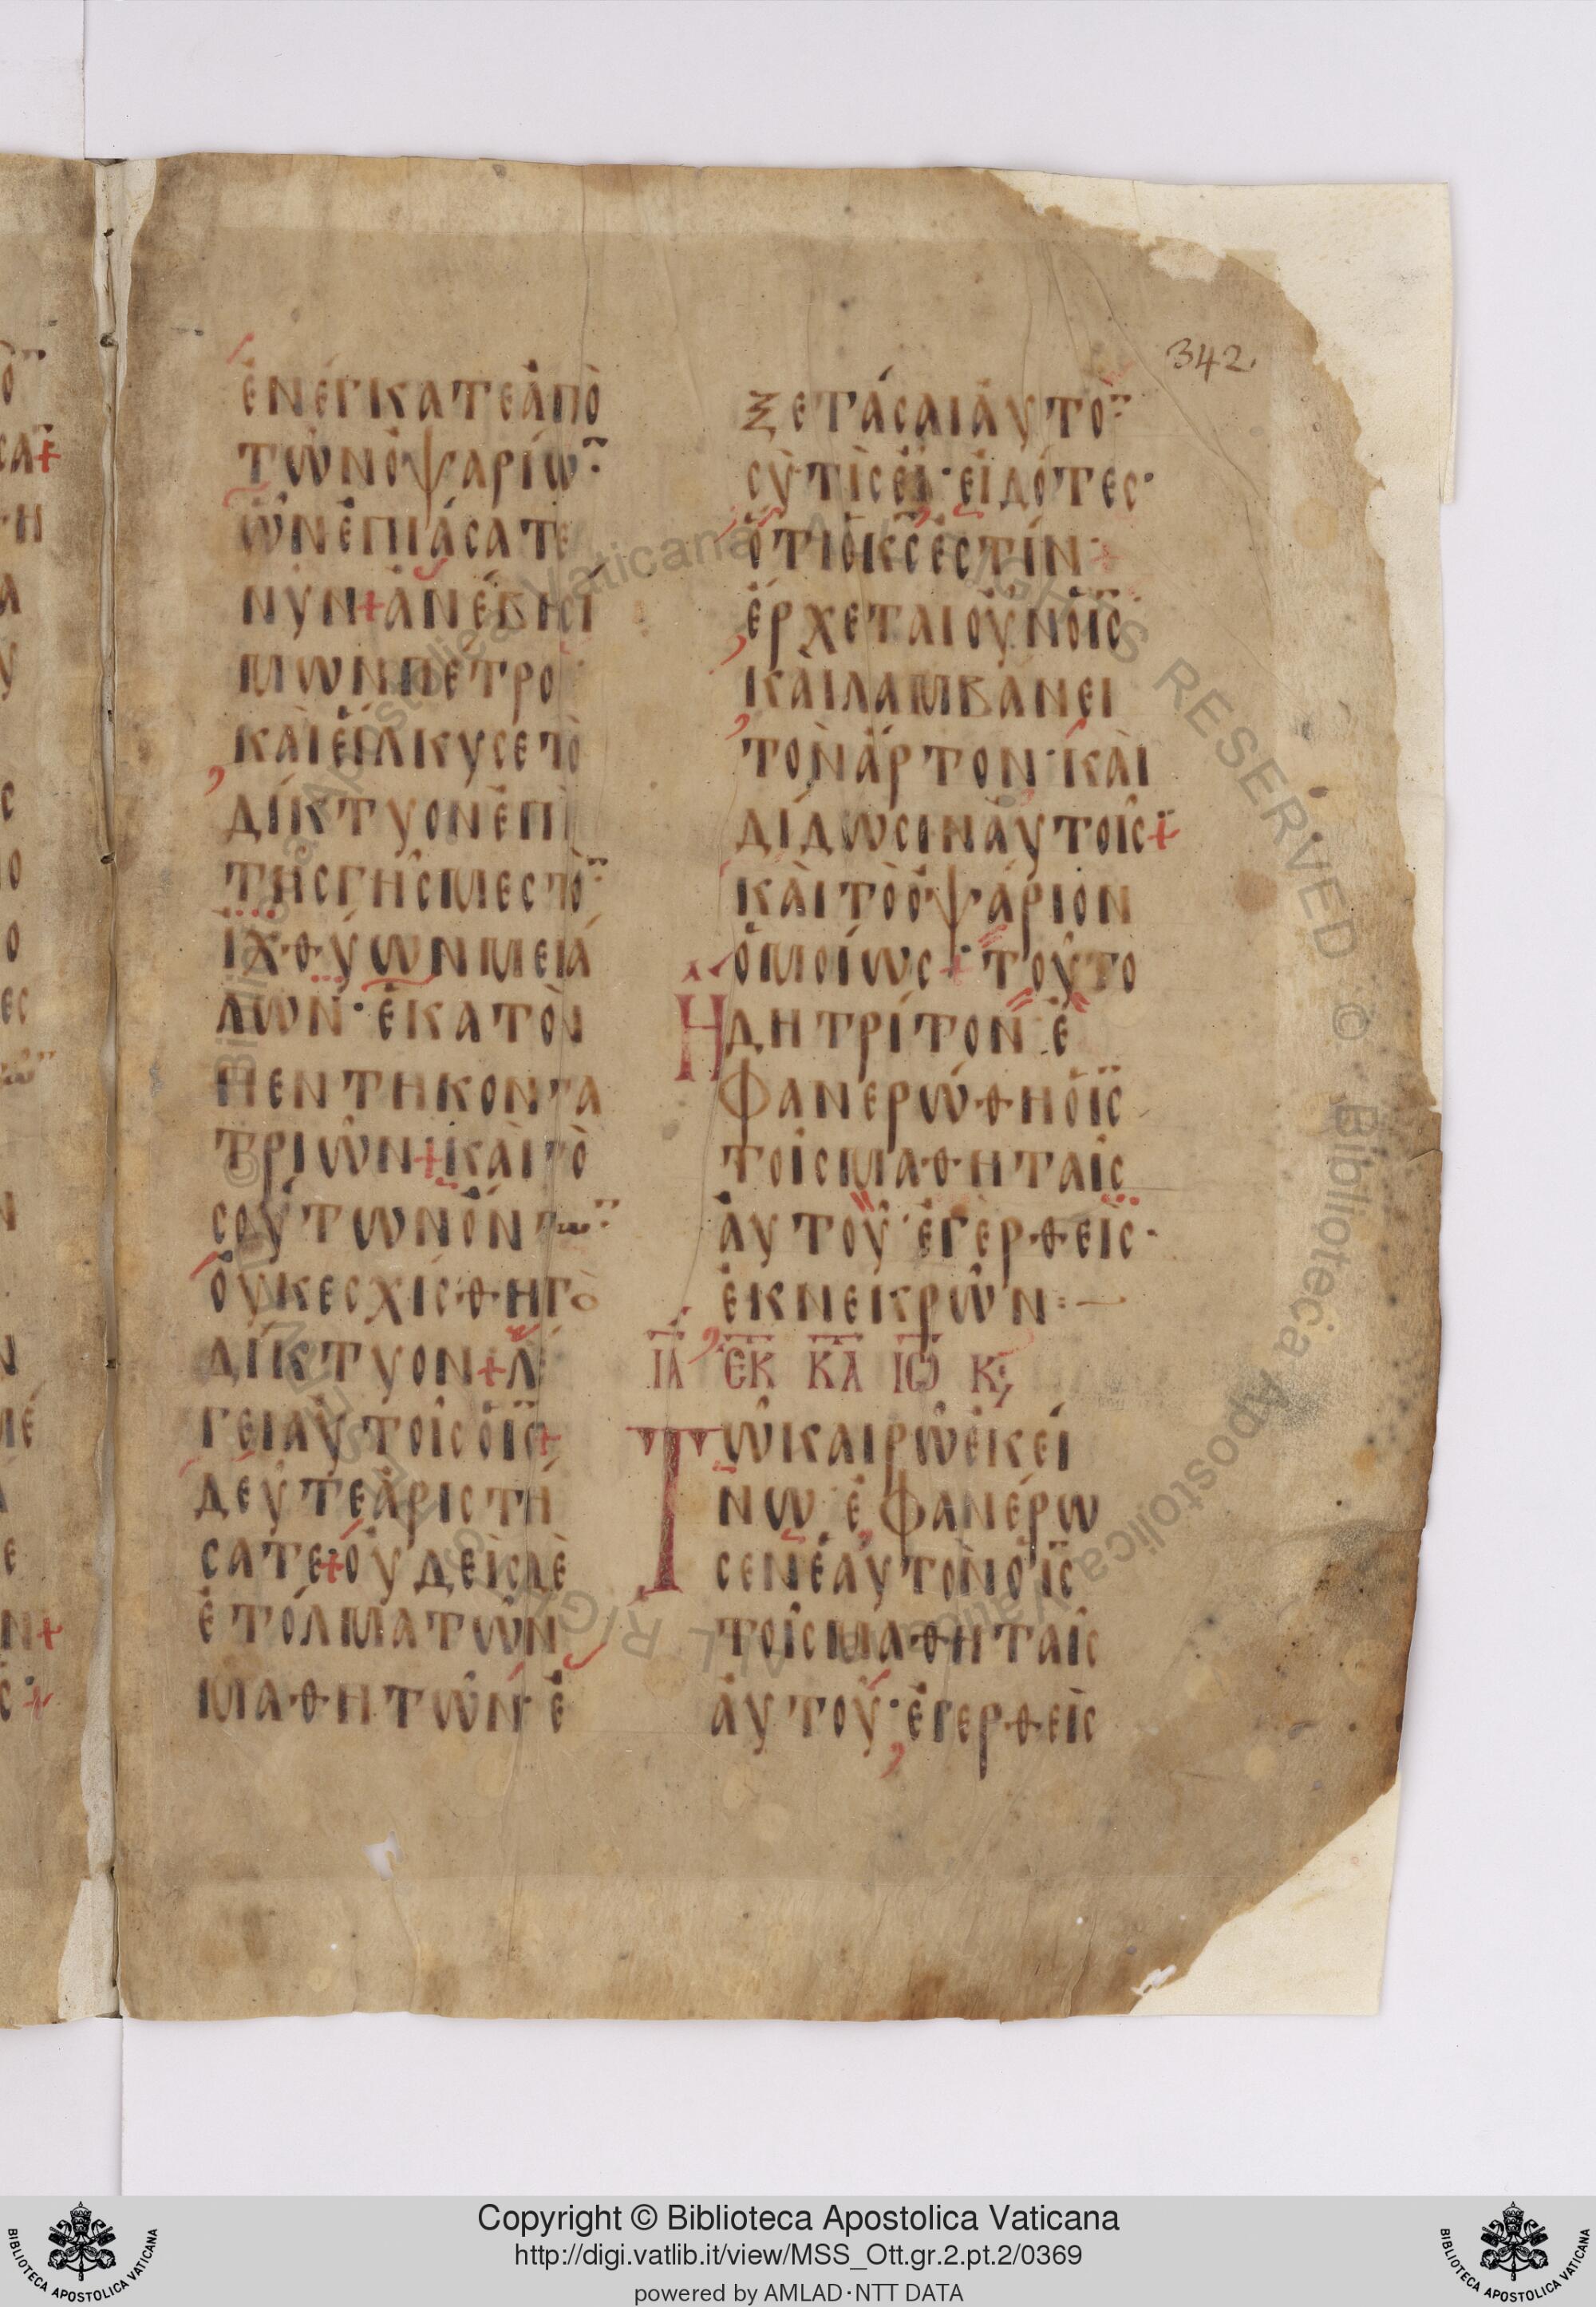 342
ἐνέγκατε ἀπὸ
τῶν ὀψαρίω
ὧν ἐπιάσατε
νῦν + ἀνέβη Σί
μων Πέτρο
καὶ εἵλκυσε τὸ
δίκτυον ἐπὶ
τῆς γῆς μεστὸ
ἰχθύων μεγά
λων · ἑκατὸν
πεντήκοντα
τριῶν + καὶ το
σούτων ὄντω
οὐκ ἐσχίσθη τὸ
δίκτυον + λ
γει αὐτοῖς ὁ ις +
δεῦτε ἀριστή
σατε + οὐδεὶς δὲ
ἐτόλμα τῶν
μαθητῶν ἐ
ξετάσαι αὐτό
σὺ τίς εἶ · εἰδότες ·
ὅτι ὁ κς ἐστίν +
ἔρχεται οὖν ὁ ις
καὶ λαμβάνει
τὸν ἄρτον · καὶ
δίδωσιν αὐτοῖς +
καὶ τὸ ὀψάριον
ὁμοίως + τοῦτο
ἤδη τρίτον ἐ
φανερώθη ὁ ις
τοῖς μαθηταῖς
αὐτοῦ · ἐγερθεὶς ·
ἐκ νεκρῶν
ΙΑ ΕΚ ΚΑ ΙΩ Κ
Τῶ καιρῶ ἐκεί
νω ἐφανέρω
σεν ἑαυτὸν ὁ ις
τοῖς μαθηταῖς
αὐτοῦ · ἐγερθεὶς
Copyright © Biblioteca Apostolica Vaticana
http://digi.vatlib.it/view/MSS_Ott.gr.2.pt.2/0369
powered by AMLAD·NTT DATA
BIBLIOTECA APOSTOLICA VATICANA
BIBLIOTECA APOSTOLICA VATICANA